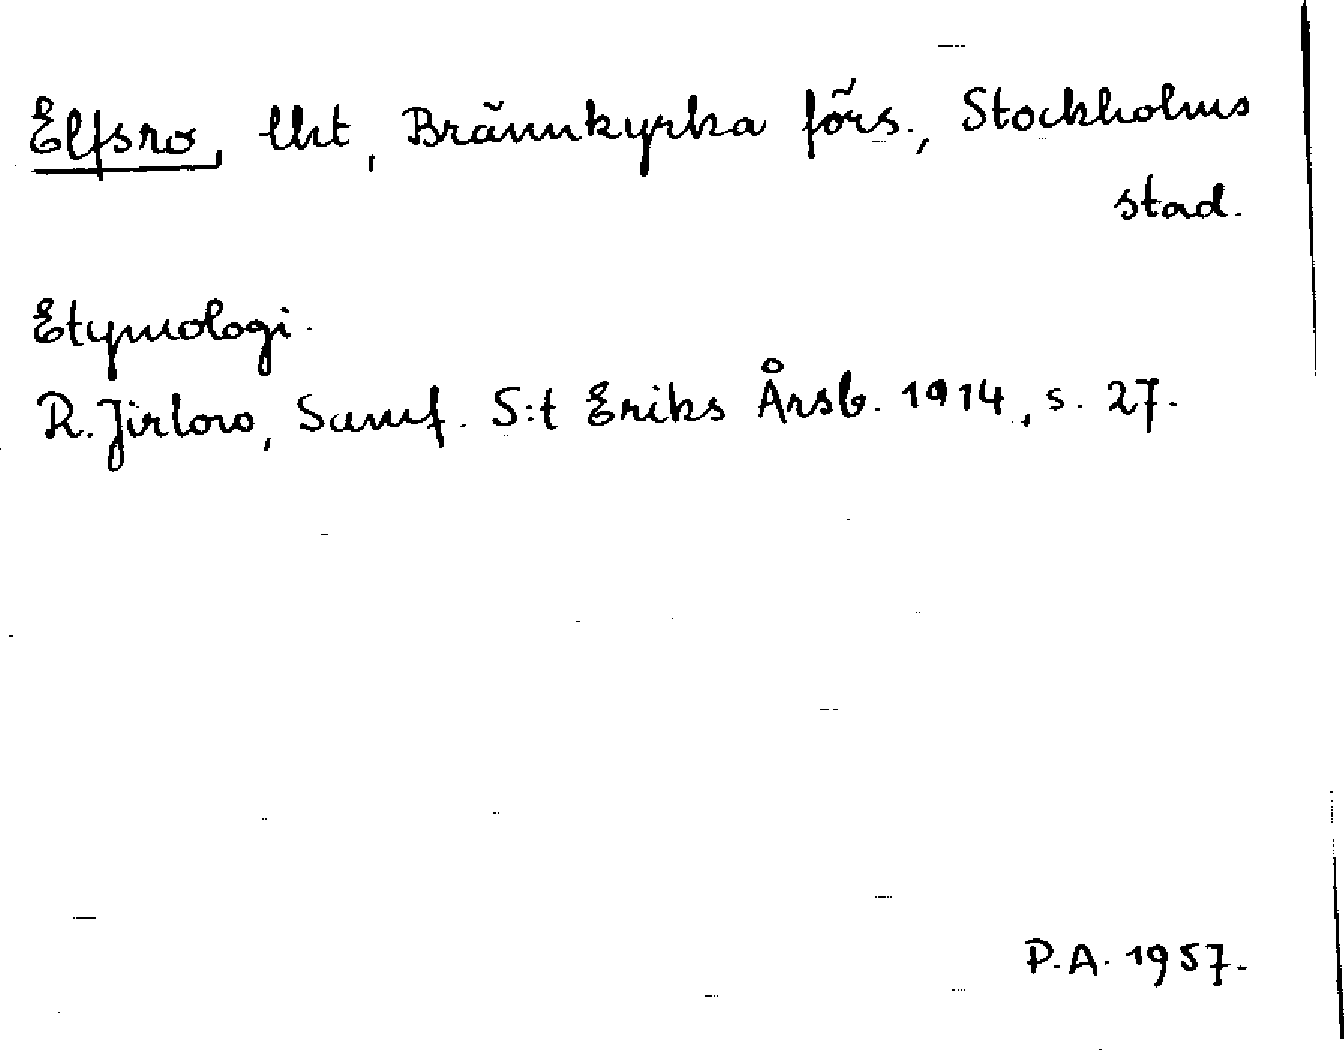 Elfsro, lht, Brännkyrka förs., Stockholms
stad.
Etymologi.
R. Jirlow, Samf. S:t Eriks Årsb. 1914, s. 27.
P.A. 1957.